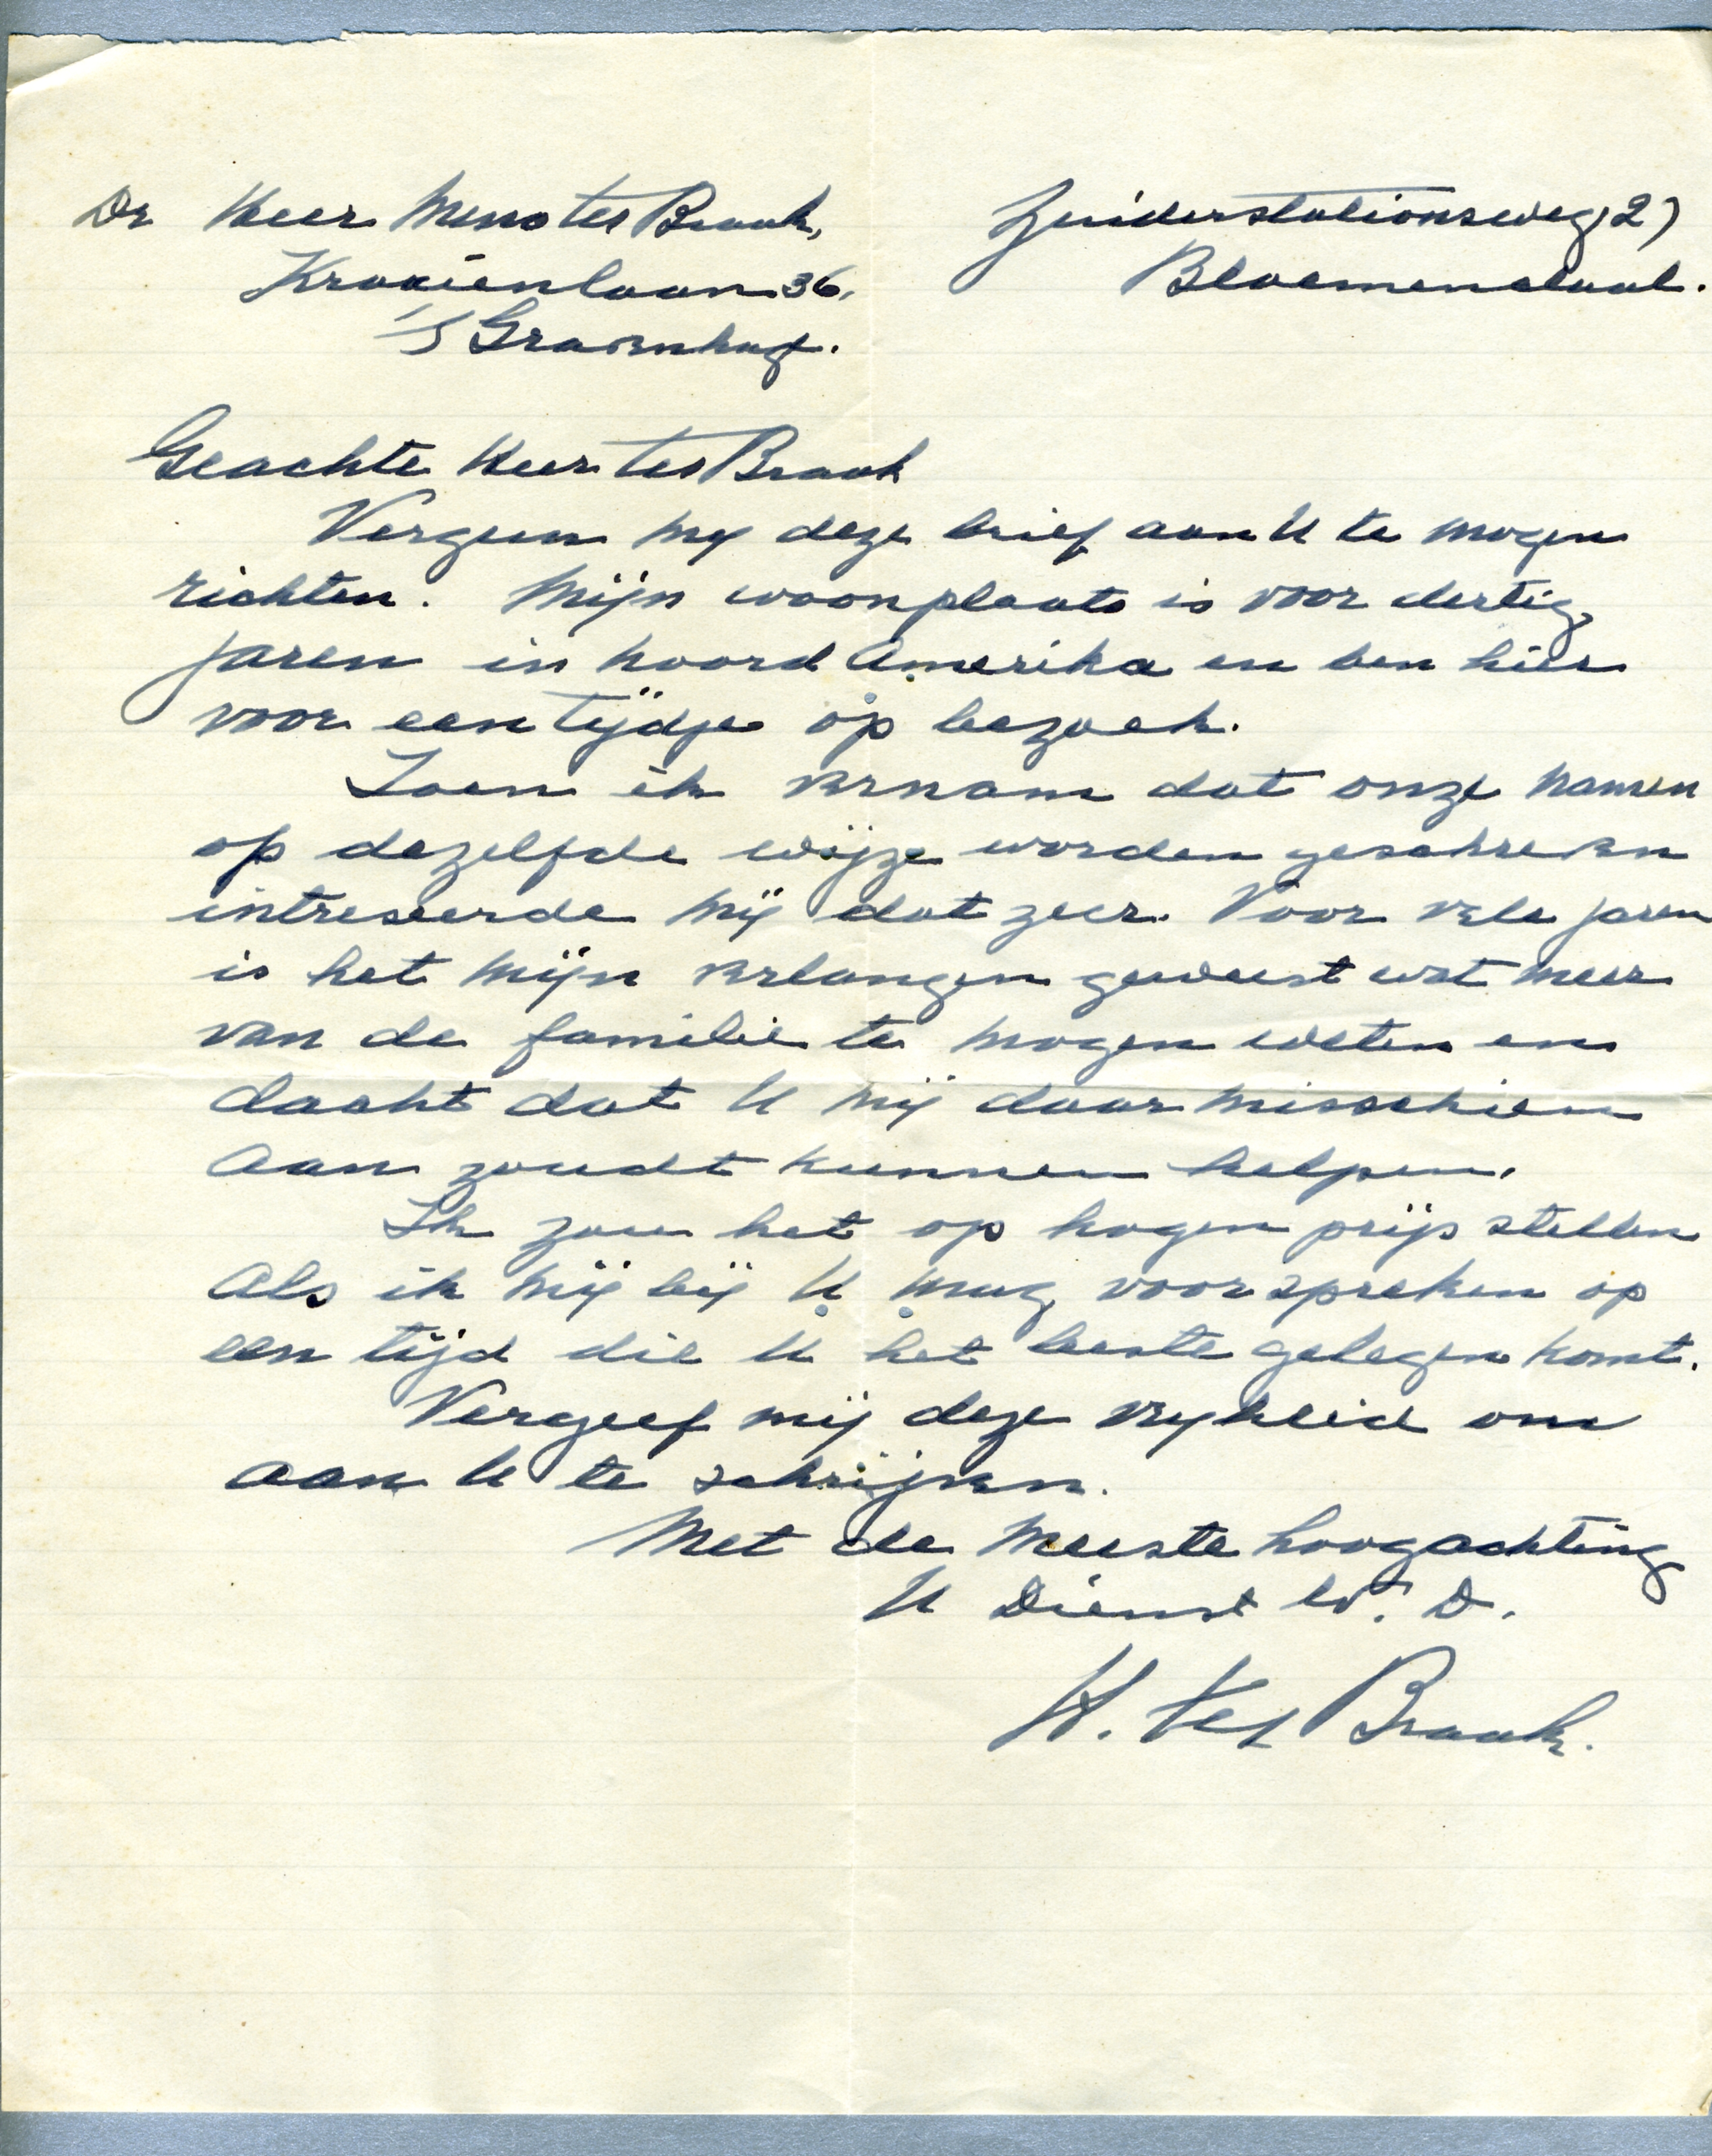 De Heer Menno ter Braak,
Kraaienlaan 36,
's Gravenhage.
Zuiderstationsweg 27
Bloemendaal.
Geachte Heer ter Braak
Vergun mij deze brief aan U te mogen
richten. Mijn woonplaats is voor dertig
jaren in Noord Amerika en ben hier
voor een tijdje op bezoek.
Toen ik vernam dat onze namen
op dezelfde wijze worden geschreven
intreseerde mij dat zeer. Voor vele jaren
is het mijn verlangen geweest wat meer
van de familie te mogen weten en
dacht dat U mij daar misschien
aan zoudt kunnen helpen.
Ik zou het op hogen prijs stellen
als ik mij bij U mag voorspreken op
een tijd die U het beste gelegen komt.
Vergeef mij deze vryheid om
aan U te schrijven.
Met de meeste hoogachting
U Dienst w. D.
H. ter Braak.